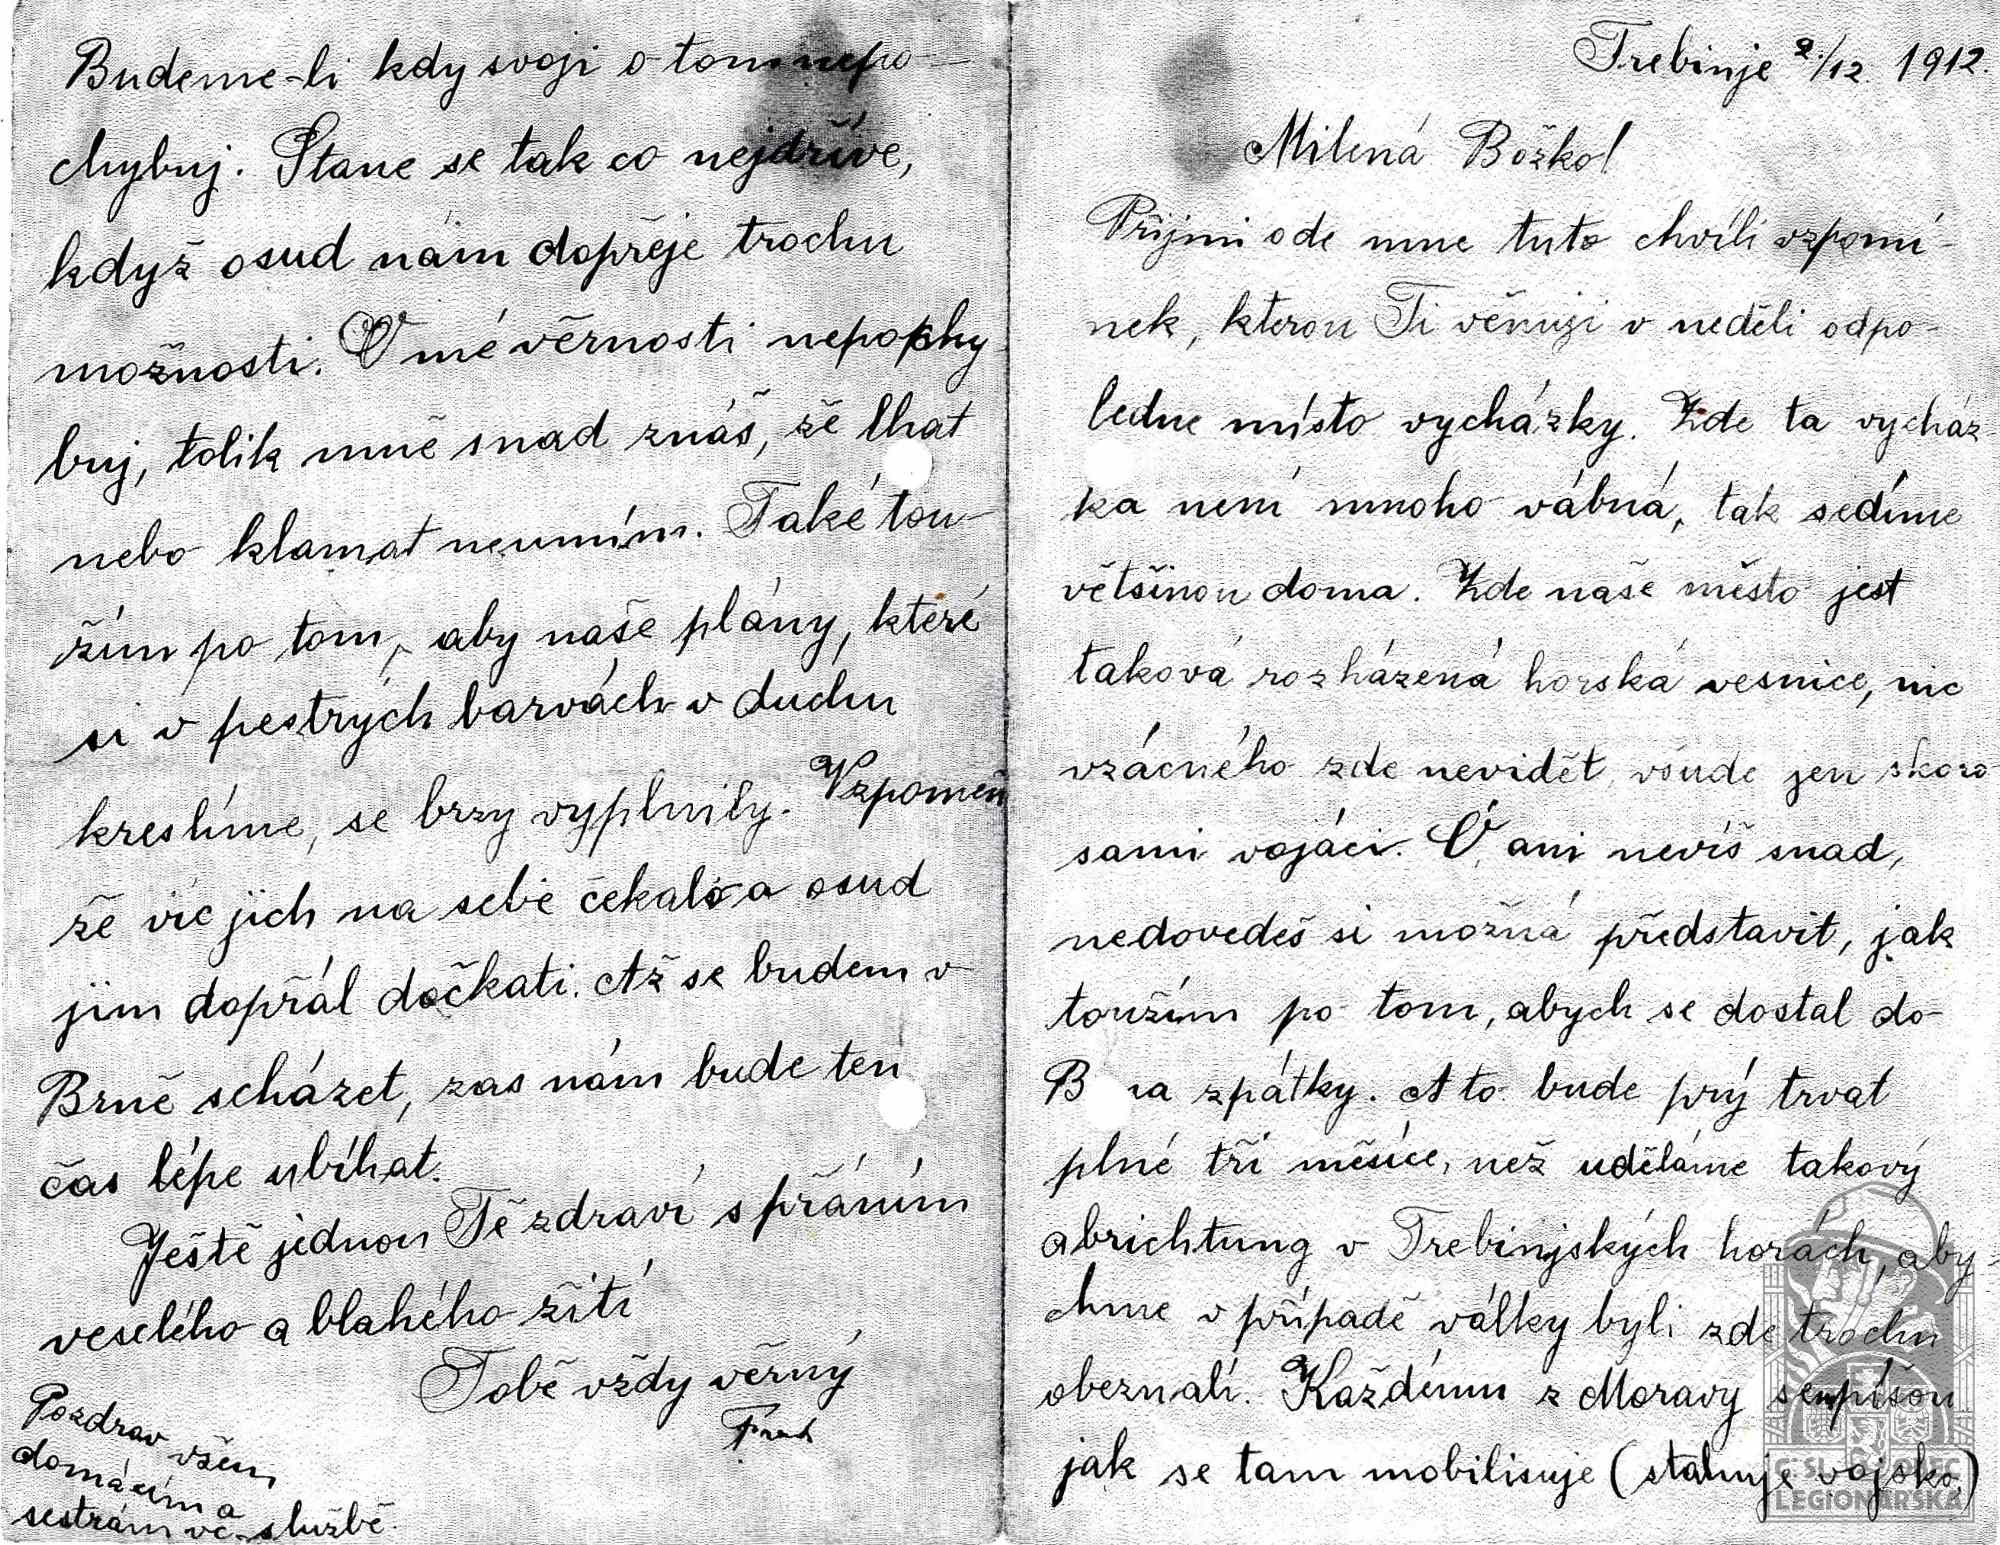 Trebinje 2./12. 1912.
Milená Božko!
Přijmi ode mne tuto chvíli vzpomí-
nek, kterou Ti věnuji v neděli odpo-
ledne místo vycházky. Zde ta vycház-
ka není mnoho vábná, tak sedíme
většinou doma. Zde naše město jest
taková rozházená horská vesnice, nic
vzácného zde nevidět, všude jen skoro
sami vojáci. Ó, ani nevíš snad,
nedovedeš si možná představit, jak
toužím po tom, abych se dostal do
B na zpátky. A to bude prý trvat
plné tři měsíce, než uděláme takový
abrichtung v Trebinjských horách, aby-
chme v případě války byli zde trochu
obeznalí. Každému z Moravy sem píšou
jak se tam mobilisuje (stahuje vojsko)
Budeme-li kdy svoji o tom nepo-
chybuj. Stane se tak co nejdříve,
když osud nám dopřeje trochu
možnosti. O mé věrnosti nepochy
buj, tolik mně snad znáš, že lhat
nebo klamat neumím. Také tou-
žím po tom, aby naše plány, které
si v pestrých barvách v duchu
kreslíme, se brzy vyplnily. Vzpomeň
že víc jich na sebe čekalo a osud
jim dopřál dočkati. Až se budem v
Brně scházet, zas nám bude ten
čas lépe ubíhat.
Ještě jednou Tě zdraví s přáním
veselého a blahého žití
Tobě vždy věrný
Pozdrav všem
domácím a
sestrám ve službě.
Č. SL. OBEC
LEGIONÁŘSKÁ